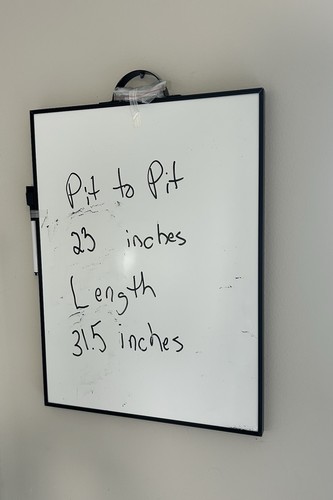 Pit to Pit
23 inches
Length
31.5 inches